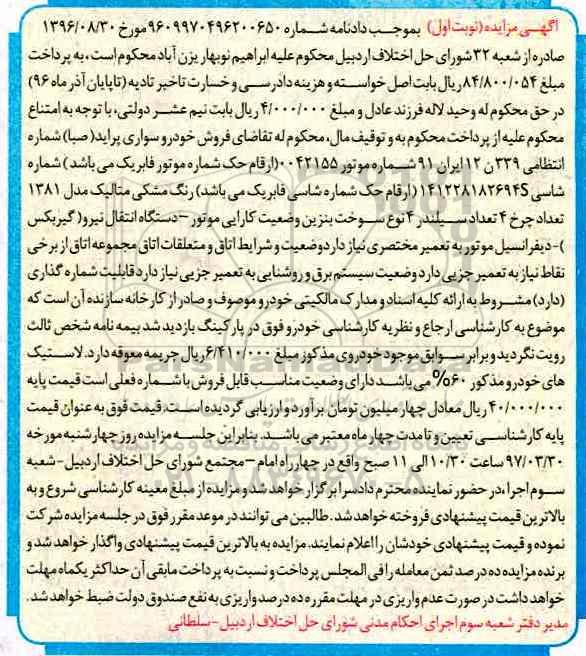 آگهی مزایده (نوبت اول) بموجب دادنامه شماره ۹۶۰۹۹۷۰۴۹۶۲۰۰۶۵۰ مورخ ۱۳۹۶/۰۸/۳۰
صادره از شعبه ۳۲ شورای حل اختلاف اردبیل محکوم علیه ابراهیم نوبهار یزن آباد محکوم است، به پرداخت
مبلغ ۸۴/۸۰۰/۰۵۴ ریال بابت اصل خواسته و هزینه دادرسی و خسارت تاخیر تادیه (تا پایان آذر ماه ۹۶)
در حق محکوم له وحید لاله فرزند عادل و مبلغ ۴/۰۰۰/۰۰۰ ریال بابت نیم عشر دولتی، با توجه به امتناع
محکوم علیه از پرداخت محکوم به و توقیف مال، محکوم له تقاضای فروش خودرو سواری پراید (صبا) شماره
انتظامی ۳۳۹ ن ۱۲ ایران ۹۱ شماره موتور ۰۰۴۲۱۵۵ (ارقام حک شماره موتور فابریک می باشد) شماره
شاسی ۱۴۱۲۲۸۱۸۲۶۹۴S (ارقام حک شماره شاسی فابریک می باشد) رنگ مشکی متالیک مدل ۱۳۸۱
تعداد چرخ ۴ تعداد سیلندر ۴ نوع سوخت بنزین وضعیت کارایی موتور – دستگاه انتقال نیرو (گیربکس
)- دیفرانسیل موتور به تعمیر مختصری نیاز دارد وضعیت و شرایط اتاق و متعلقات اتاق مجموعه اتاق از برخی
نقاط نیاز به تعمیر جزیی دارد وضعیت سیستم برق و روشنایی به تعمیر جزیی نیاز دارد قابلیت شماره گذاری
(دارد) مشروط به ارائه کلیه اسناد و مدارک مالکیتی خودرو موصوف و صادر از کارخانه سازنده آن است که
موضوع به کارشناسی ارجاع و نظریه کارشناسی خودرو فوق در پارکینگ بازدید شد بیمه نامه شخص ثالث
رویت نگردید و برابر سوابق موجود خودروی مذکور مبلغ ۶/۴۱۰/۰۰۰ ریال جریمه معوقه دارد. لاستیک
های خودرو مذکور ۶۰% می باشد دارای وضعیت مناسب قابل فروش با شماره فعلی است قیمت پایه
۴۰/۰۰۰/۰۰۰ ریال معادل چهار میلیون تومان برآورد و ارزیابی گردیده است. قیمت فوق به عنوان قیمت
پایه کارشناسی تعیین و تا مدت چهار ماه معتبر می باشد. بنابراین جلسه مزایده روز چهارشنبه مورخه
۹۷/۰۳/۳۰ ساعت ۱۰/۳۰ الی ۱۱ صبح واقع در چهارراه امام – مجتمع شورای حل اختلاف اردبیل - شعبه
سوم اجرا، در حضور نماینده محترم دادسرا برگزار خواهد شد و مزایده از مبلغ معینه کارشناسی شروع و به
بالاترین قیمت پیشنهادی فروخته خواهد شد. طالبین می توانند در موعد مقرر فوق در جلسه مزایده شرکت
نموده و قیمت پیشنهادی خودشان را اعلام نمایند. مزایده به بالاترین قیمت پیشنهادی واگذار خواهد شد و
برنده مزایده ده درصد ثمن معامله را فی المجلس پرداخت و نسبت به پرداخت مابقی آن حداکثر یکماه مهلت
خواهد داشت در صورت عدم واریزی در مهلت مقرره ده درصد واریزی به نفع صندوق دولت ضبط خواهد شد.
مدیر دفتر شعبه سوم اجرای احکام مدنی شورای حل اختلاف اردبیل - سلطانی